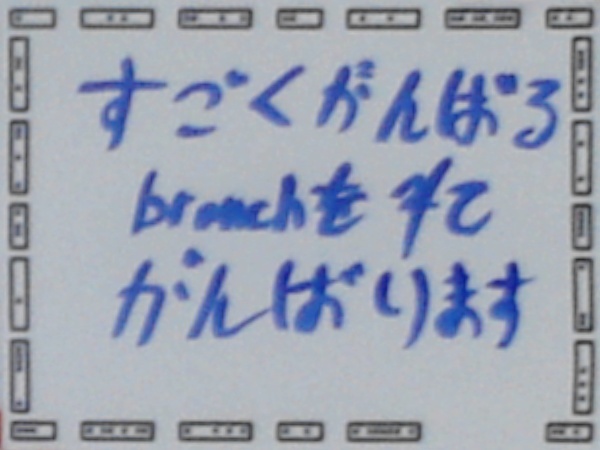 すごくがんばる
branchを してて
がんばります